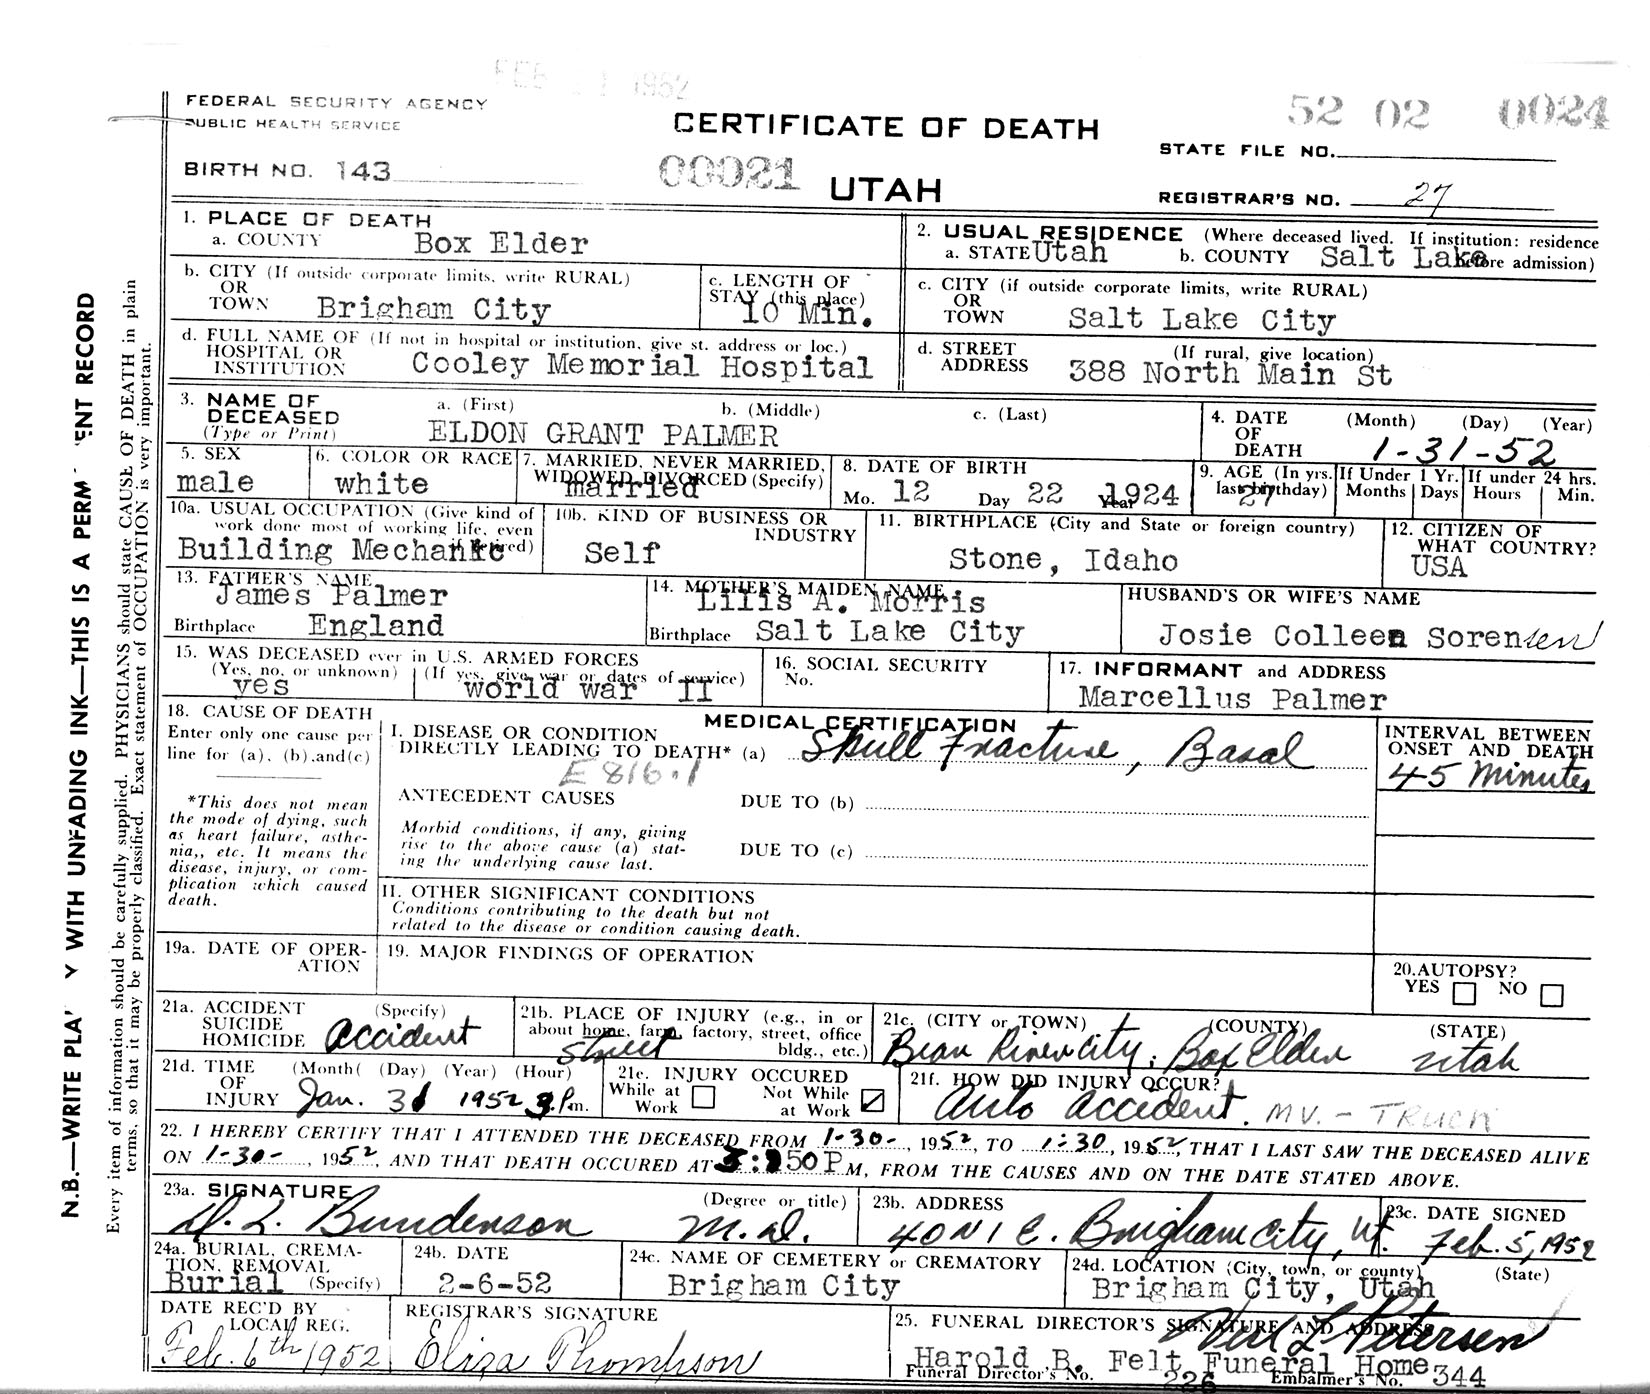 FEB 1952
FEDERAL SECURITY AGENCY
PUBLIC HEALTH SERVICE
CERTIFICATE OF DEATH
52 02 0024
STATE FILE NO.
BIRTH NO. 143
00021
UTAH
REGISTRAR'S NO. 27
1. PLACE OF DEATH
a. COUNTY Box Elder
2. USUAL RESIDENCE (Where deceased lived. If institution: residence before admission)
a. STATE Utah b. COUNTY Salt Lake
b. CITY (If outside corporate limits, write RURAL)
OR
TOWN Brigham City
c. LENGTH OF
STAY (this place)
10 Min.
c. CITY (if outside corporate limits, write RURAL)
OR
TOWN Salt Lake City
d. FULL NAME OF (If not in hospital or institution, give st. address or loc.)
HOSPITAL OR
INSTITUTION Cooley Memorial Hospital
d. STREET (If rural, give location)
ADDRESS 388 North Main St
3. NAME OF
DECEASED
(Type or Print)
a. (First) b. (Middle) c. (Last)
ELDON GRANT PALMER
4. DATE (Month) (Day) (Year)
OF
DEATH 1-31-52
5. SEX
male
6. COLOR OR RACE
white
7. MARRIED, NEVER MARRIED,
WIDOWED DIVORCED (Specify)
married
8. DATE OF BIRTH
Mo. 12 Day 22 Year 1924
9. AGE (In yrs.
last birthday)
27
If Under 1 Yr.
Months Days
If under 24 hrs.
Hours Min.
10a. USUAL OCCUPATION (Give kind of
work done most of working life, even
if retired)
Building Mechanic
10b. KIND OF BUSINESS OR
INDUSTRY
Self
11. BIRTHPLACE (City and State or foreign country)
Stone, Idaho
12. CITIZEN OF
WHAT COUNTRY?
USA
13. FATHER'S NAME
James Palmer
Birthplace England
14. MOTHER'S MAIDEN NAME
Lilis A. Morris
Birthplace Salt Lake City
HUSBAND'S OR WIFE'S NAME
Josie Colleen Sorensen
15. WAS DECEASED ever in U.S. ARMED FORCES
(Yes, no, or unknown) (If yes, give war or dates of service)
yes world war II
16. SOCIAL SECURITY
No.
17. INFORMANT and ADDRESS
Marcellus Palmer
18. CAUSE OF DEATH
Enter only one cause per
line for (a), (b), and (c)
*This does not mean
the mode of dying, such
as heart failure, asthe-
nia,, etc. It means the
disease, injury, or com-
plication which caused
death.
MEDICAL CERTIFICATION
I. DISEASE OR CONDITION
DIRECTLY LEADING TO DEATH* (a) Skull Fracture, Basal
E 816.1
ANTECEDENT CAUSES DUE TO (b)
Morbid conditions, if any, giving
rise to the above cause (a) stat-
ing the underlying cause last.
DUE TO (c)
II. OTHER SIGNIFICANT CONDITIONS
Conditions contributing to the death but not
related to the disease or condition causing death.
INTERVAL BETWEEN
ONSET AND DEATH
45 Minutes
19a. DATE OF OPER-
ATION
19. MAJOR FINDINGS OF OPERATION
20. AUTOPSY?
YES NO
21a. ACCIDENT (Specify)
SUICIDE
HOMICIDE Accident
21b. PLACE OF INJURY (e.g., in or
about home, farm, factory, street, office
bldg., etc.)
Street
21c. (CITY or TOWN) (COUNTY) (STATE)
Bear River City, Box Elder Utah
21d. TIME (Month( (Day) (Year) (Hour)
OF
INJURY Jan. 31 1952 P.m.
21e. INJURY OCCURED
While at Work Not While at Work
21f. HOW DID INJURY OCCUR?
Auto accident. MV. - TRUCK
22. I HEREBY CERTIFY THAT I ATTENDED THE DECEASED FROM 1-30-, 1952, TO 1:30, 1952, THAT I LAST SAW THE DECEASED ALIVE
ON 1-30-, 1952, AND THAT DEATH OCCURED AT :50 P M, FROM THE CAUSES AND ON THE DATE STATED ABOVE.
23a. SIGNATURE (Degree or title)
Bunderson M.D.
23b. ADDRESS
40 N 1 E. Brigham City, Ut.
23c. DATE SIGNED
Feb. 5, 1952
24a. BURIAL, CREMA-
TION, REMOVAL
Burial (Specify)
24b. DATE
2-6-52
24c. NAME OF CEMETERY OR CREMATORY
Brigham City
24d. LOCATION (City, town, or county) (State)
Brigham City, Utah
DATE REC'D BY
LOCAL REG.
Feb. 6th 1952
REGISTRAR'S SIGNATURE
Eliza Thompson
25. FUNERAL DIRECTOR'S SIGNATURE AND ADDRESS
Petersen
Harold B. Felt Funeral Home
Funeral Director's No. 226 Embalmer's No. 344
N.B.—WRITE PLA Y WITH UNFADING INK—THIS IS A PERM ENT RECORD
Every item of information should be carefully supplied. PHYSICIANS should state CAUSE OF DEATH in plain
terms, so that it may be properly classified. Exact statement of OCCUPATION is very important.